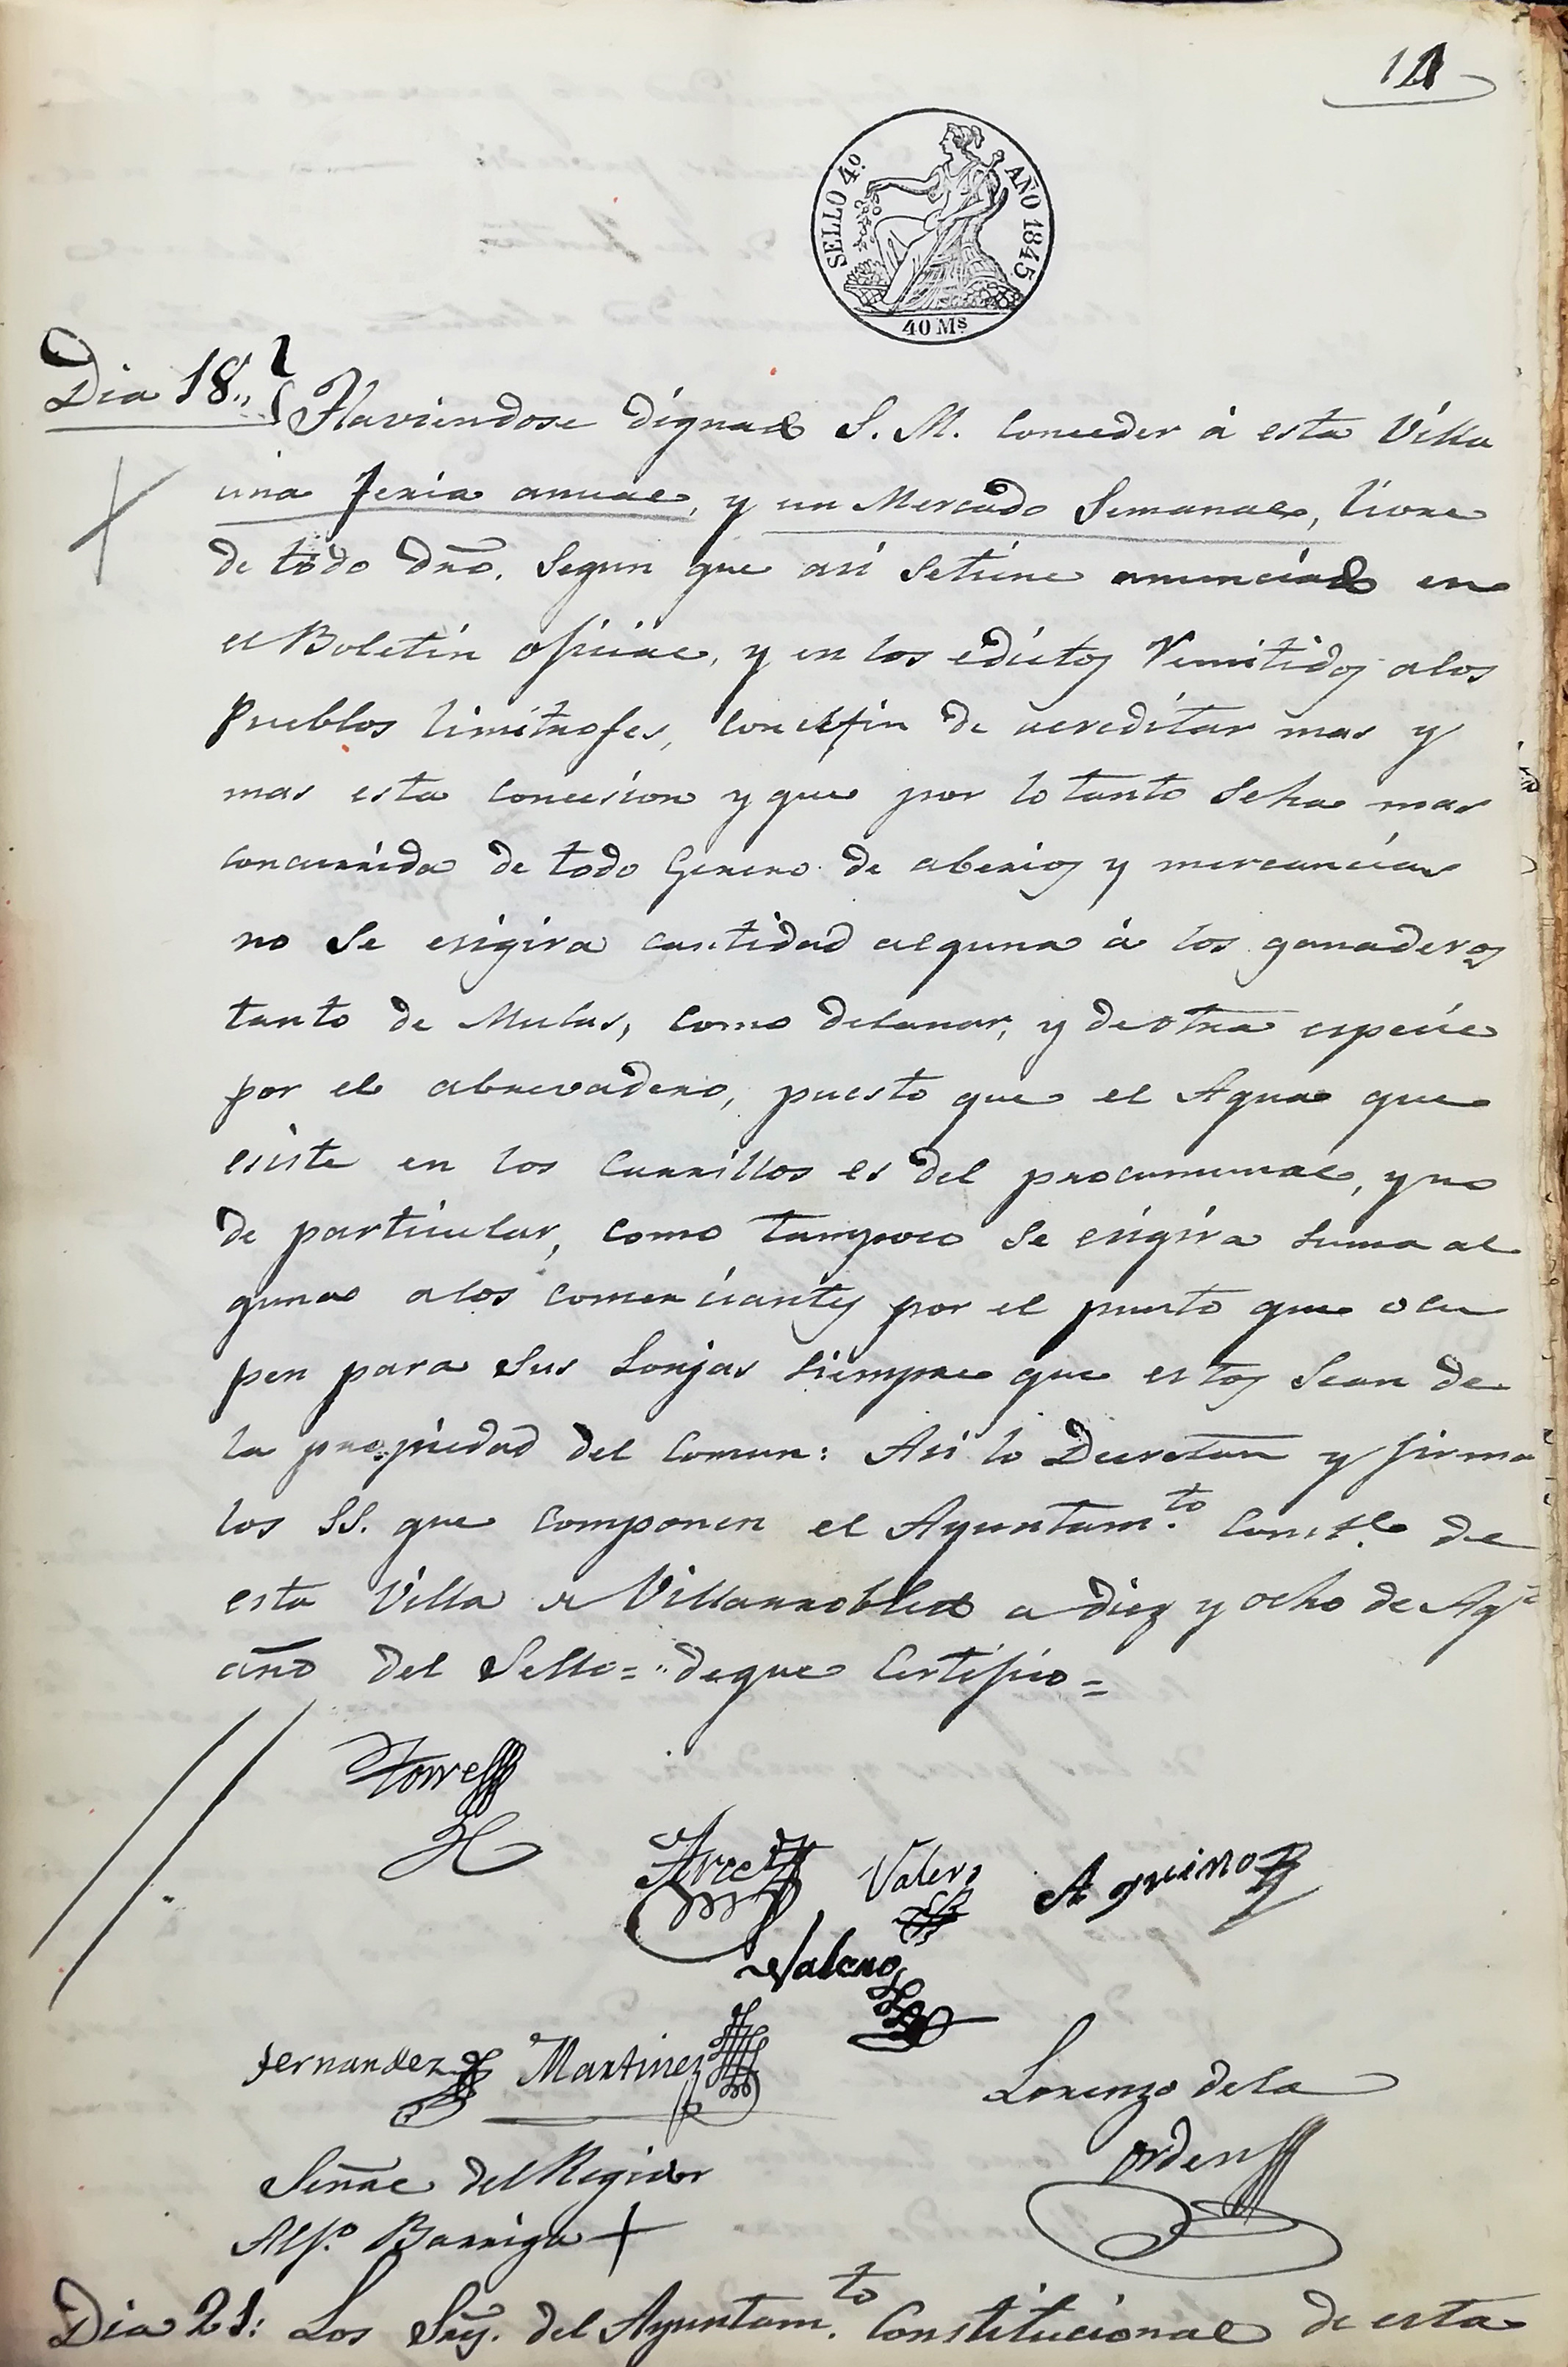 SELLO 4º AÑO 1845
40 Ms
Dia 18.,
Haviendose dignado S. M. Conceder á esta Villa
una feria anual, y un Mercado Semanal, livre
de todo dro. Segun que asi setiene anunciado en
el Boletin oficial, y en los edictos Remitidos alos
Pueblos limitrofes, con elfin de acreditar mas y
mas esta Concesion y que por lo tanto Seha mas
concurrida de todo Genero de aberios y mercancias
no Se esigira cantidad alguna á los ganaderos
tanto de Mulas, como delanar, y deotra especie
por el abrevadero, puesto que el Agua que
esiste en los Carrillos es del procumunal, y no
de particular, como tampoco Se esigira suma al
guna alos comerciantes por el puesto que ocu
pen para Sus Lonjas Siempre que estos Sean de
la propiedad del Comun: Asi lo Decretan y firma
los SS. que componen el Ayuntam.to Const.l de
esta Villa de Villarrobledo a diez y ocho de Ag.to
año del Sello= deque Certifico=
Torres
Arce Valero Aguino
Valero
Fernandez Martinez
Lorenzo dela
Orden
Señal del Regidor
Alf.o Barriga +
Dia 21: Los Sres. del Ayuntam.to Constitucional de esta